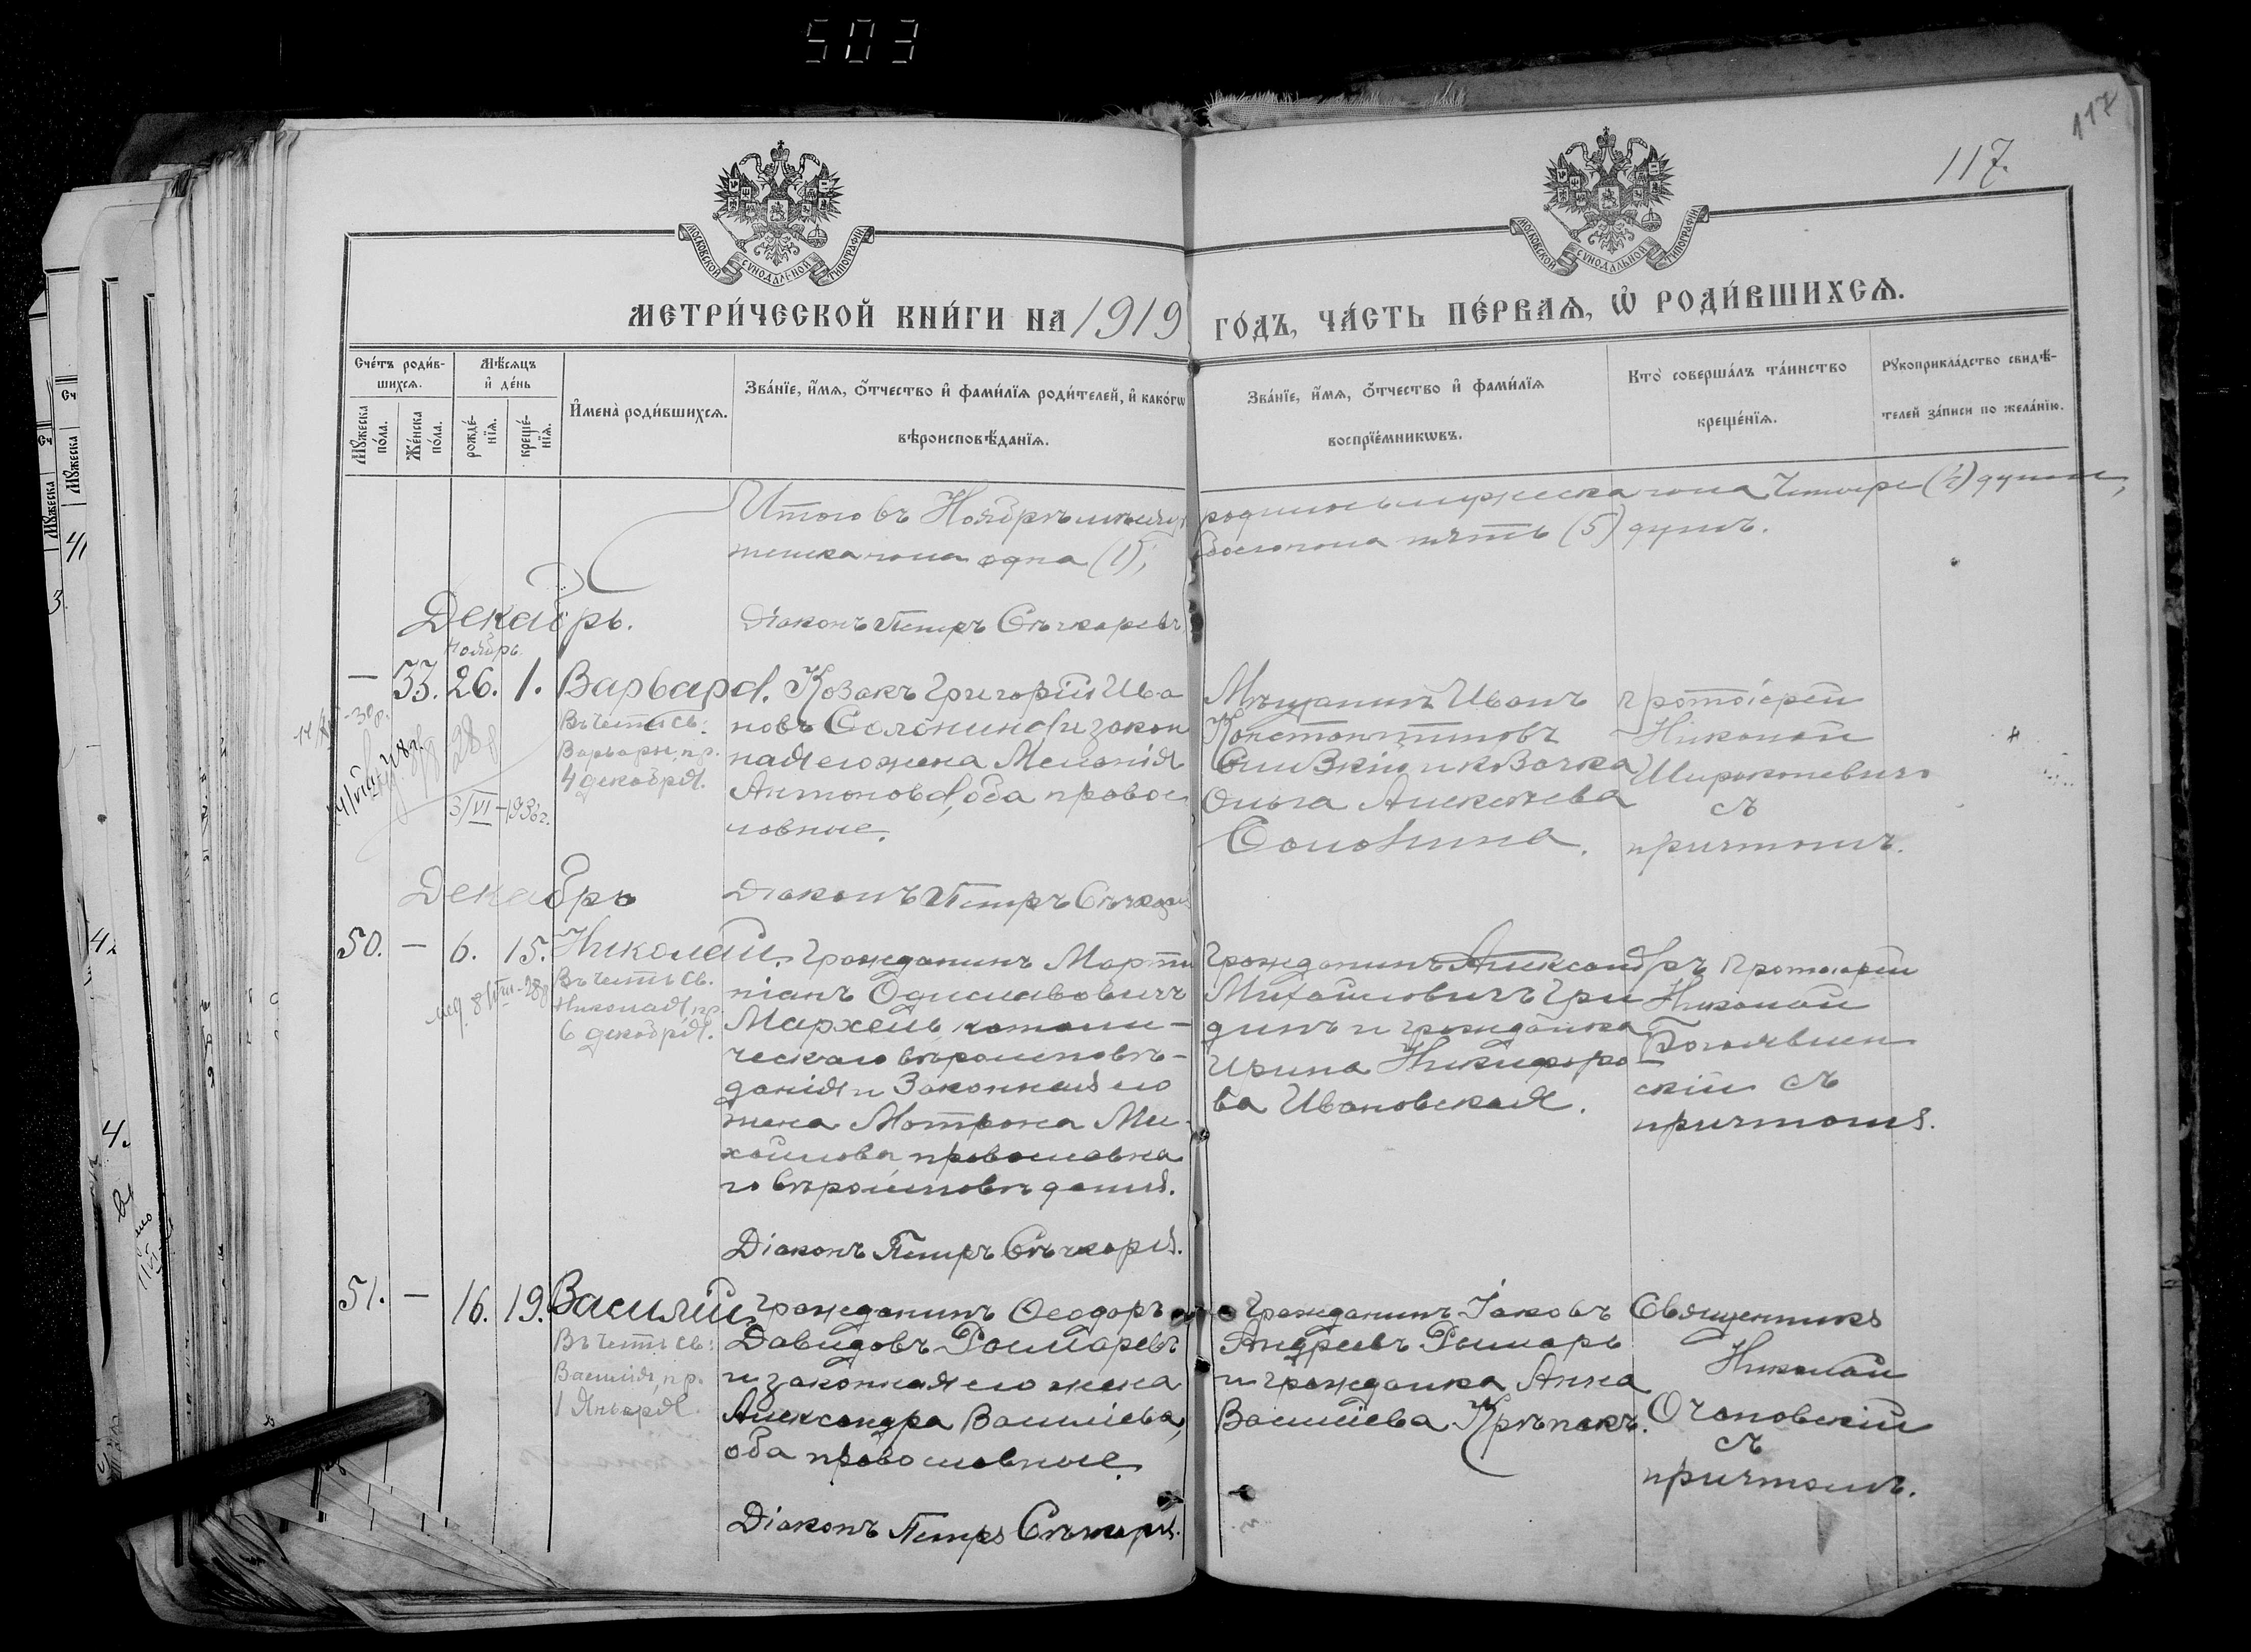 503
117
117.
МОСКОВСКОЙ СѴНОДАЛЬНОЙ ТИПОГРАФІИ
МОСКОВСКОЙ СѴНОДАЛЬНОЙ ТИПОГРАФІИ
МЕТРИ́ЧЕСКОЙ КНИ́ГИ НА 1919 ГО́ДЪ, ЧА́СТЬ ПЕ́РВАѦ, Ѡ҆ РОДИ́ВШИХСѦ.
Сче́тъ роди́в-
шихсѧ.
Мꙋ́жеска
по́ла.
Же́нска
по́ла.
Мѣ́сѧцъ
и҆ де́нь
рожде́-
нїѧ.
креще́-
нїѧ.
И҆мена̀ роди́вшихсѧ.
Зва́нїе, и҆́мѧ, ѻ҆́тчество и҆ фами́лїѧ роди́телей, и҆ како́гѡ
вѣроисповѣ́данїѧ.
Зва́нїе, и҆́мѧ, ѻ҆́тчество и҆ фами́лїѧ
воспрїе́мникѡвъ.
Кто̀ соверша́лъ та́инство
креще́нїѧ.
Рꙋкоприкла́дство свидѣ́-
телей за́писи по жела́нїю.
Итого въ Ноябрѣ мѣсяцѣ родилось мужеска пола четыре (4) души,
женска пола одна (1); обоего пола пять (5) душъ.
Декабрь.
Діаконъ Петръ Сѣчкаревъ
Ноябрь
— 33. 26. 1. Варвара.
Въ честь св:
Варвары, пр.
4 декабря.
3/VI-1936г.
Козакъ Григорій Ива
новъ Солонина и закон
ная его жена Меланія
Антонова, оба правос
лавные.
Мѣщанинъ Иванъ
Константиновъ
и козачка
Ольга Алексѣева
Солонина.
Протоіерей
Николай
Широконевичъ
съ
причтомъ.
Декабрь
Діаконъ Петръ Сѣчкар
50. — 6. 15. Николай.
Въ честь св.
Николая, пр.
6 декабря.
Гражданинъ Марти
ніанъ
Мархель, католи-
ческаго вѣроисповѣ-
данія и законная его
жена Мотрона Ми
хайлова православна
го вѣроисповѣданія.
Гражданинъ Александръ
Михайловичъ Гри
динъ и гражданка
Ирина Никифоро
ва Ивановская.
Протоіерей
Николай
Богоявлен
скій съ
причтомъ.
Діаконъ Петръ Сѣчкаре.
51. — 16. 19. Василій.
Въ честь св:
Василія, пр.
1 Января.
Гражданинъ Ѳеодоръ
Давидовъ
и законная его жена
Александра Василіева,
оба православные.
Гражданинъ Іаковъ
Андреевъ Рымарь
и гражданка Анна
Василіева Крѣпакъ.
Священникъ
Николай
Очановскій
съ
причтомъ.
Діаконъ Петръ Сѣчкаре.